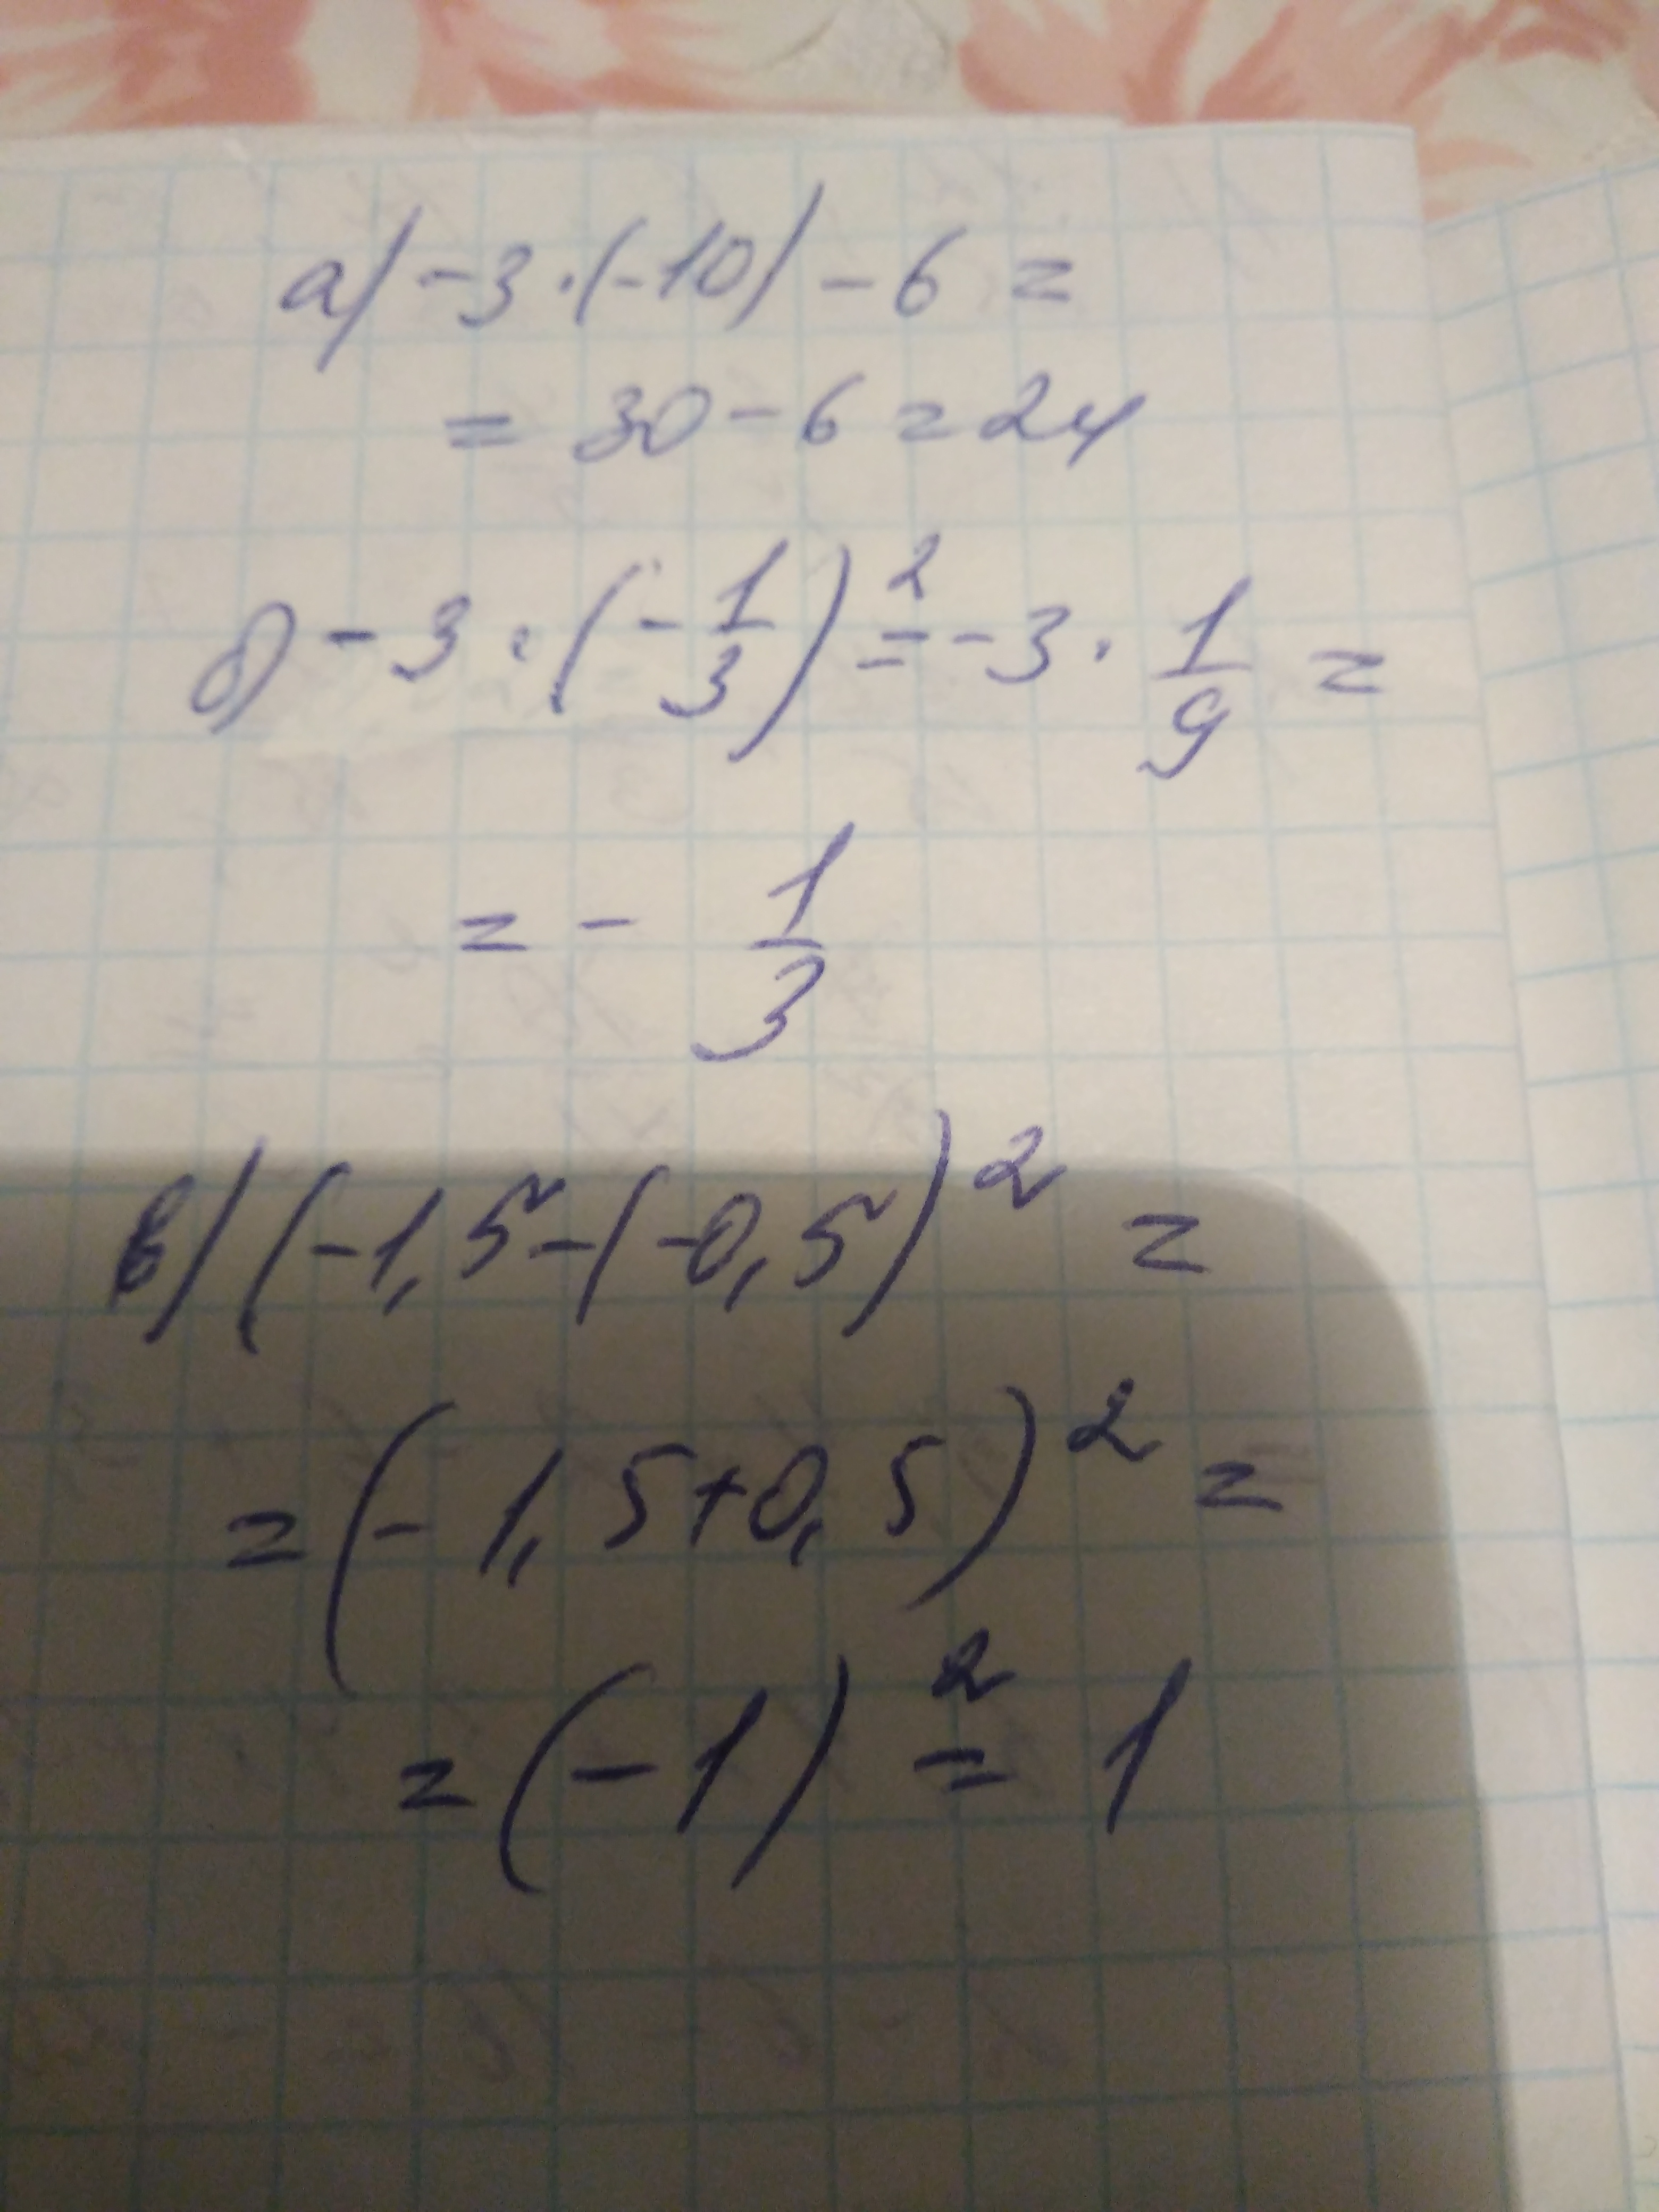 а) -3·(-10) - 6 =
= 30 - 6 = 24
б) -3·(-1/3)² = -3·1/9 =
= - 1/3
в) (-1,5-(-0,5)² =
= (-1,5+0,5)² =
= (-1)² = 1